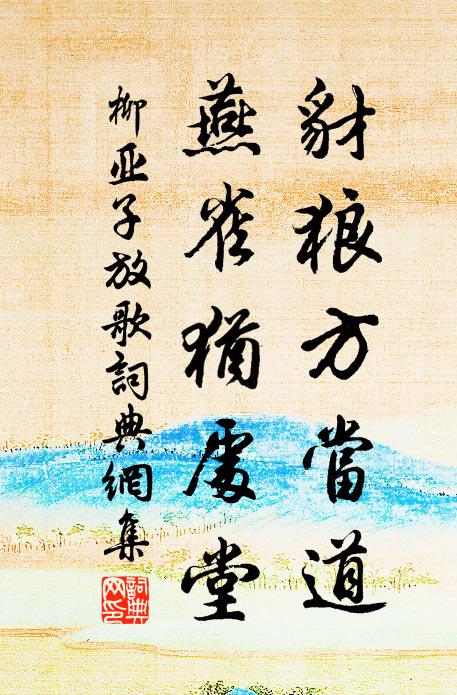 豺狼方當道
燕雀猶處堂
柳亚子放歌詞典網集
詞典网印